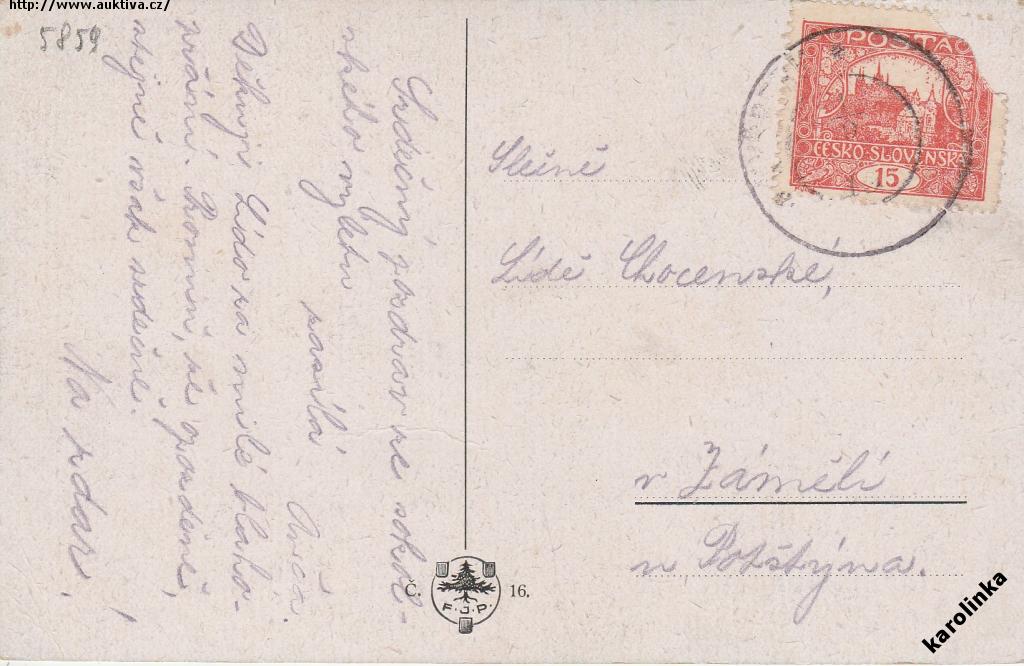 http://www.auktiva.cz/
5859
Srdečný pozdrav ze sokol-
ského výletu
zasílá
Děkuji Lído za milé blaho-
přání. Promiň, že opozdeně,
stejně však srdečně.
Na zdar!
POŠTA
ČESKO-SLOVENSKÁ
15
Slečně
Lídě Chocenské,
v Zámělí
u Potštýna.
Č.
F.J.P.
16.
karolinka